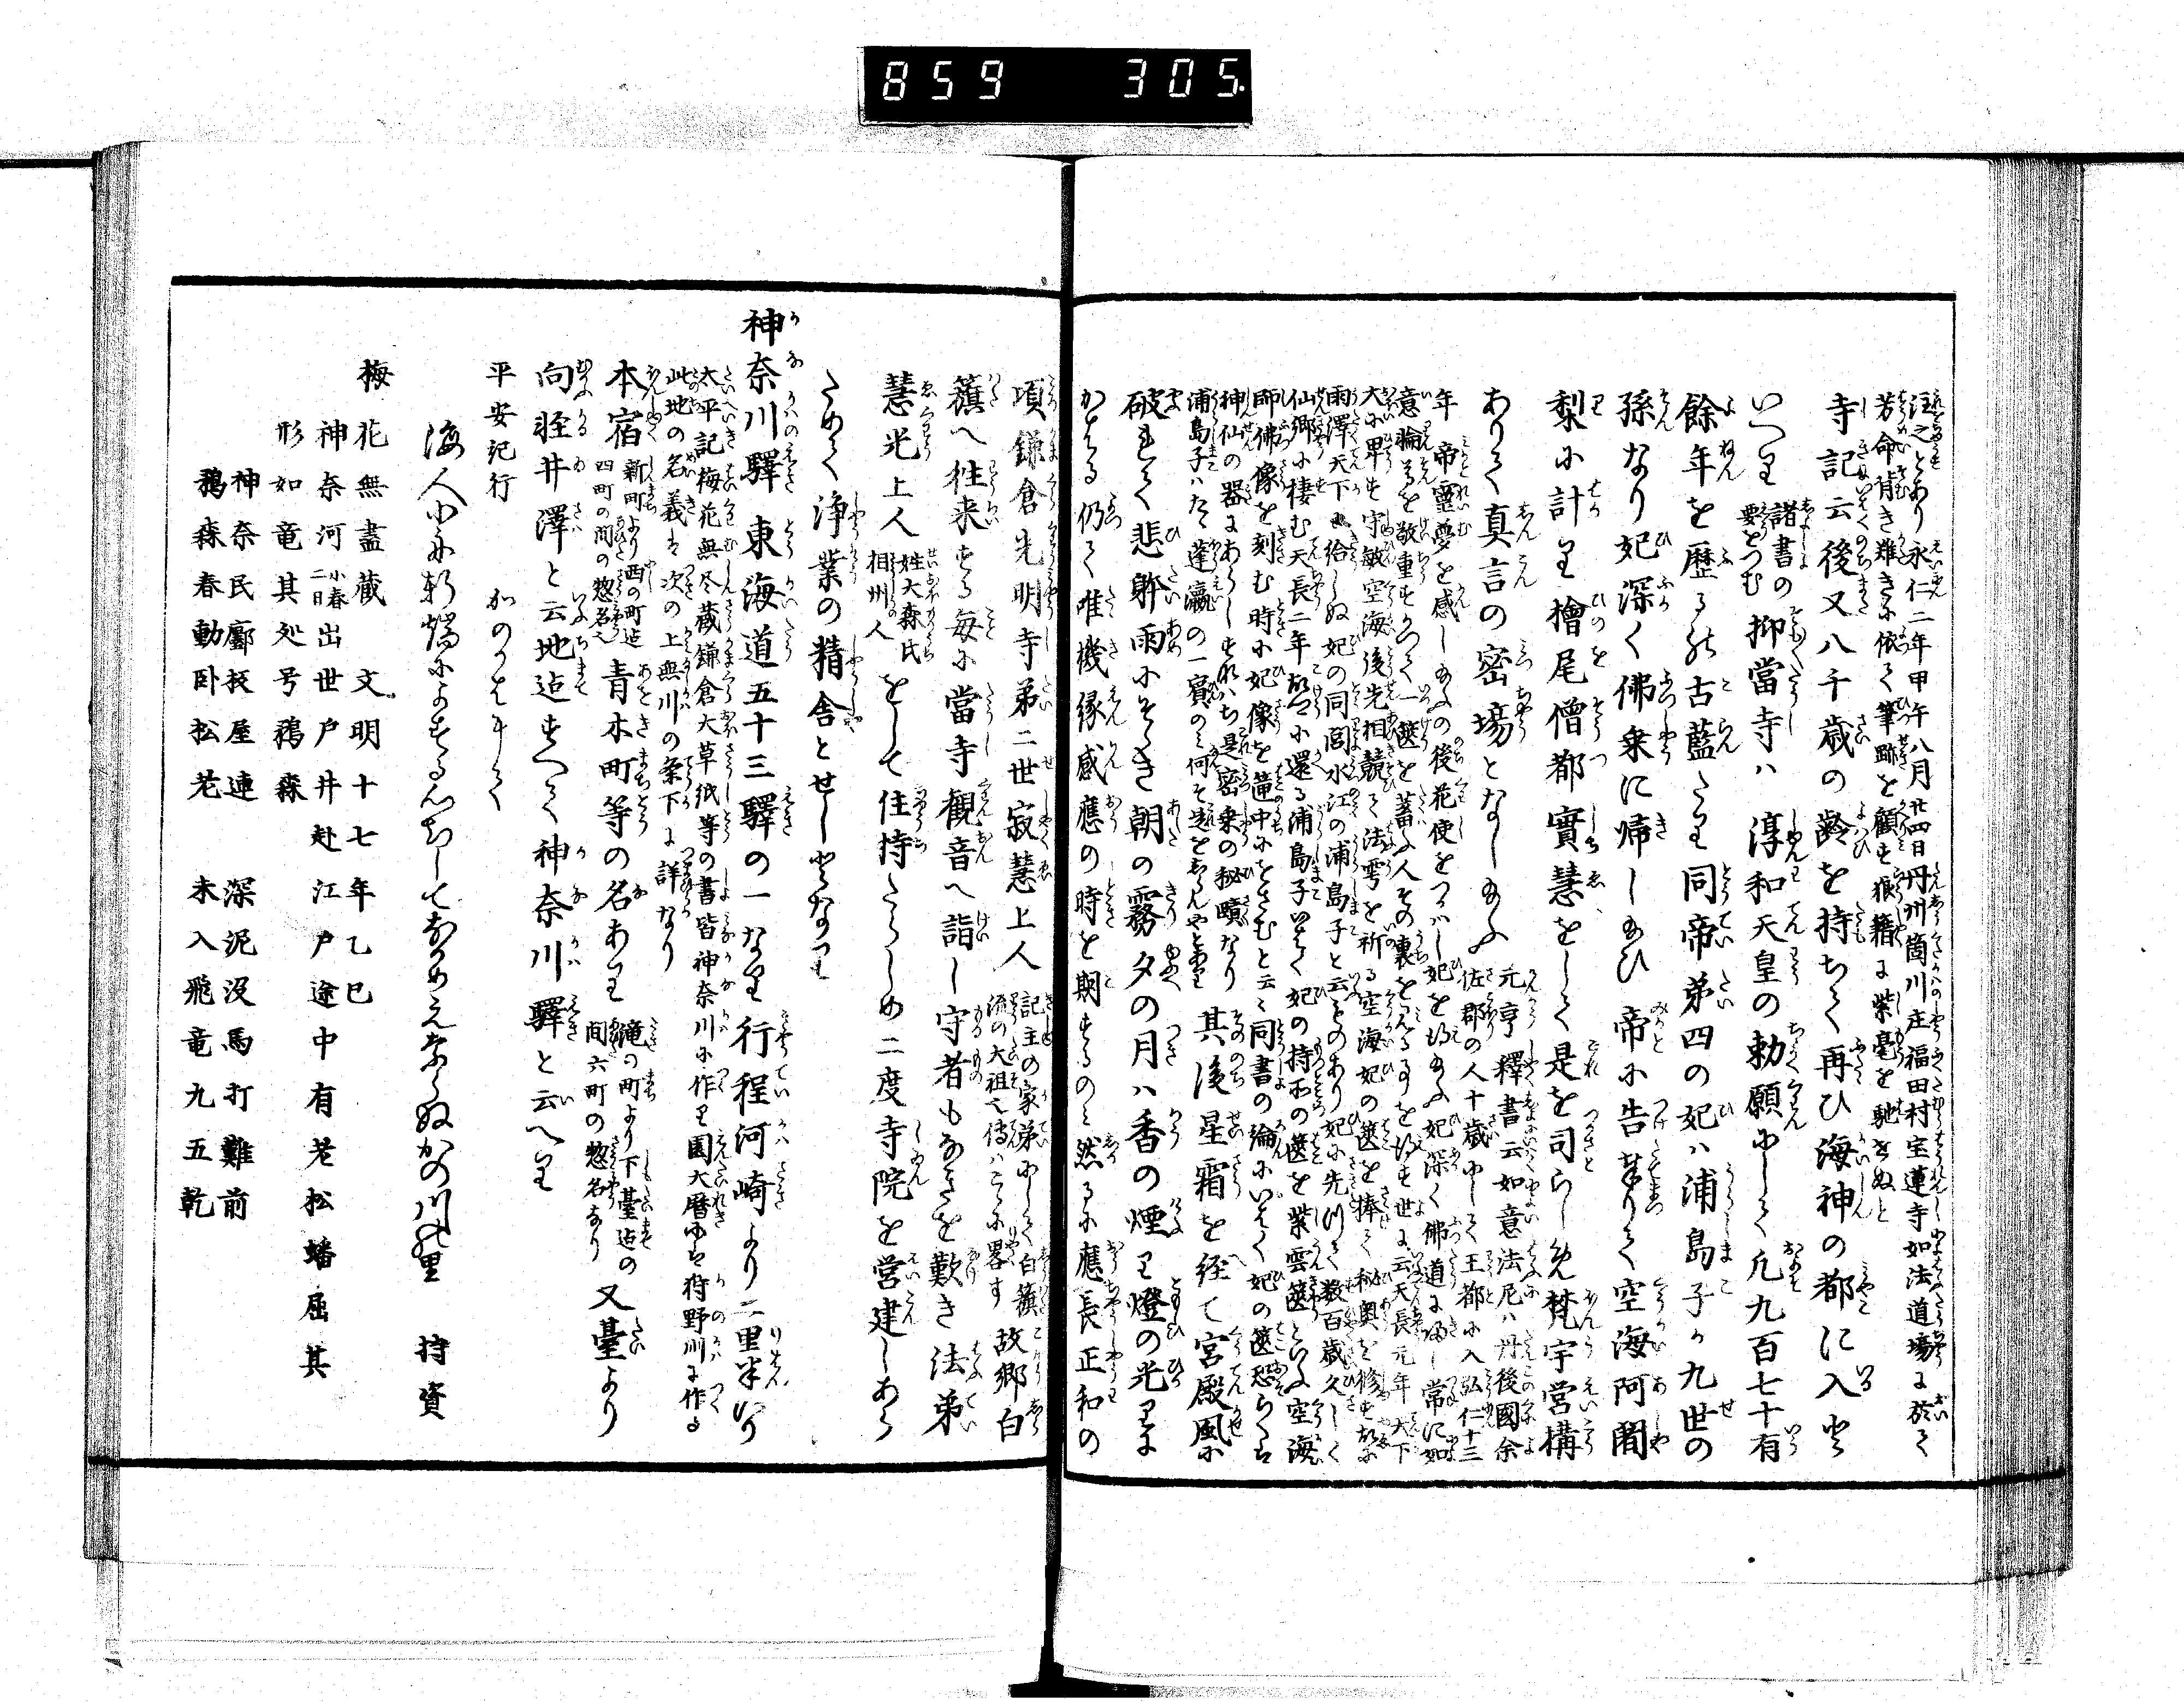 859 305.
注之とあり永仁二年甲午八月廿四日丹州筒川庄福田村宝蓮寺如法道場に於て
芳命背き難きに依て筆跡を顧す狼籍に紫毫を馳せぬと
寺記云後又八千歳の齢を持ちて再ひ海神の都に入と
いへり 諸書の要をつむ 抑當寺ハ淳和天皇の勅願にして凡九百七十有
餘年を歴る古藍たり同帝弟四の妃ハ浦島子か九世の
孫なり妃深く佛乗に帰し給ひ帝に告奉りて空海阿闍
梨に計り檜尾僧都實慧をして是を司らしめ梵宇営構
ありて真言の密場となし給ふ 元亨釋書云如意法尼ハ丹後國余
佐郡の人十歳にして王都に入弘仁十三
年帝霊夢を感し給ふの後花使をつかハし妃を得給ふ妃深く佛道に帰し常に如
意輪呪を敬重すかつて一篋を蓄ふ人その裏をみる事を得す世に云天長元年天下
大に旱す守敏空海後先相競て法雩を祈る空海妃の篋を捧て秘奥を修す故に
雨澤天下に給しぬ妃の同閭水江の浦島子と云ものあり妃に先つて数百歳久しく
仙郷に棲む天長二年故に還る浦島子いはく妃の持所の篋を紫雲篋といふ空海
師佛像を刻む時に妃像を篋中にをさむと云々同書の論にいはく妃の篋恐らくは
神仙の器にあらしすハち是密乗の秘賾なり
浦島子ハたゝ蓬瀛の一賓のミ何そ是を知んやとあり 其後星霜を経て宮殿風に
破れて悲躰雨にそゝき朝の霧夕の月ハ香の煙り燈の光りに
かはる仍て唯機縁感應の時を期するのミ然るに應長正和の
項鎌倉光明寺弟二世寂慧上人 記主の家弟にして白籏
流の大祖也傳ハこゝに畧す 故郷白
籏へ徃来する毎に當寺観音へ詣し守者もなきを歎き法弟
慧光上人 姓大森氏
相州人 をして住持たらしめ二度寺院を営建しあら
ためて浄業の精舎とせしとなり
神奈川驛 東海道五十三驛の一なり行程河崎より二里半なり
太平記梅花無尽蔵鎌倉大草紙等の書皆神奈川に作り園大暦にハ狩野川に作る
此地の名義ハ次の上無川の条下に詳なり
本宿 新町より西の町迄
四町の間の惣名也 青木町等の名あり 滝の町より下臺迄の
間六町の惣名なり 又臺より
向軽井澤と云地迄すへて神奈川驛と云へり
平安紀行 かの川をすきて
海人小舟 よする心ちしてなかめえならぬかの川の里 持資
梅花無盡蔵 文明十七年乙巳
神奈河 小春二日 出世戸井赴江戸途中有老松蟠屈其
形如竜其処号鵶森
神奈民鄽板屋連 深泥没馬打難前
鵶森春動卧松老 未入飛竜九五乾